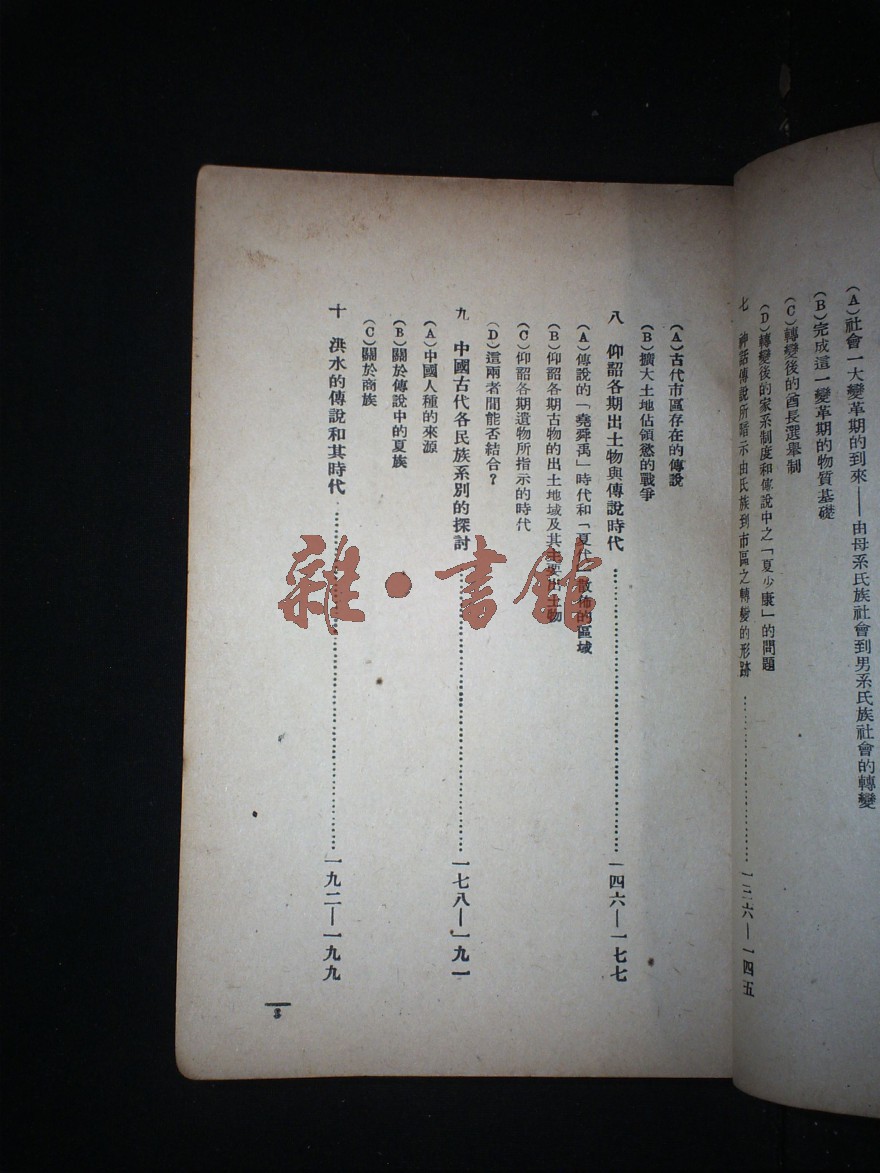 (A)社會一大變革期的到來——由母系氏族社會到男系氏族社會的轉變
(B)完成這一變革期的物質基礎
(C)轉變後的酋長選舉制
(D)轉變後的家系制度和傳說中之「夏少康」的問題
七 神話傳說所暗示由氏族到市區之轉變的形跡……一三六—一四五
(A)古代市區存在的傳說
(B)擴大土地佔領慾的戰爭
八 仰韶各期出土物與傳說時代……一四六—一七七
(A)傳說的「堯舜禹」時代和「夏代」散佈的區域
(B)仰韶各期古物的出土地域及其主要出土物
(C)仰韶各期遺物所指示的時代
(D)這兩者間能否結合?
九 中國古代各民族系別的探討……一七八—一九一
(A)中國人種的來源
(B)關於傳說中的夏族
(C)關於商族
十 洪水的傳說和其時代……一九二—一九九
3
雜·書館